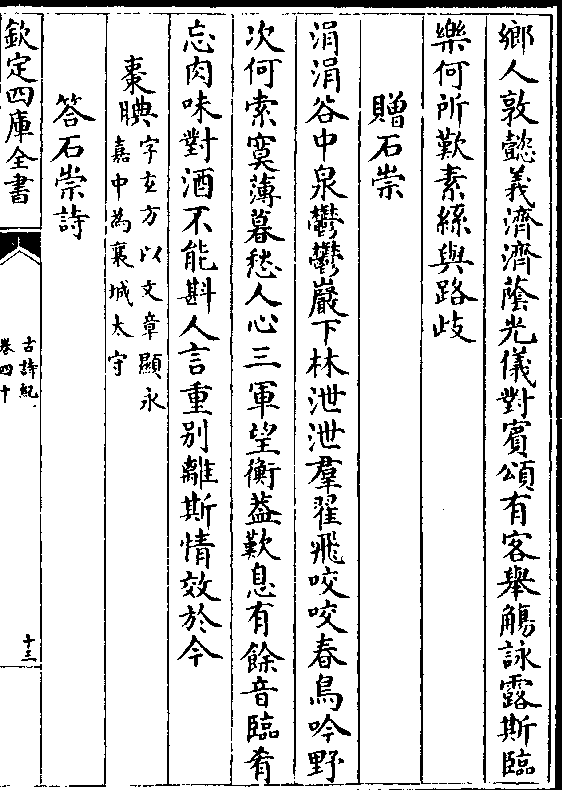 鄉人敦懿義濟濟蔭光儀對賓頌有客舉觴詠露斯臨
樂何所歎素絲與路歧
贈石崇
涓涓谷中泉鬱鬱巖下林泄泄羣翟飛咬咬春鳥吟野
次何索寞薄暮愁人心三軍望衡蓋歎息有餘音臨肴
忘肉味對酒不能斟人言重別離斯情效於今
棗腆
字玄方以文章顯永
嘉中為襄城太守
答石崇詩
欽定四庫全書
古詩紀
卷四十
十三